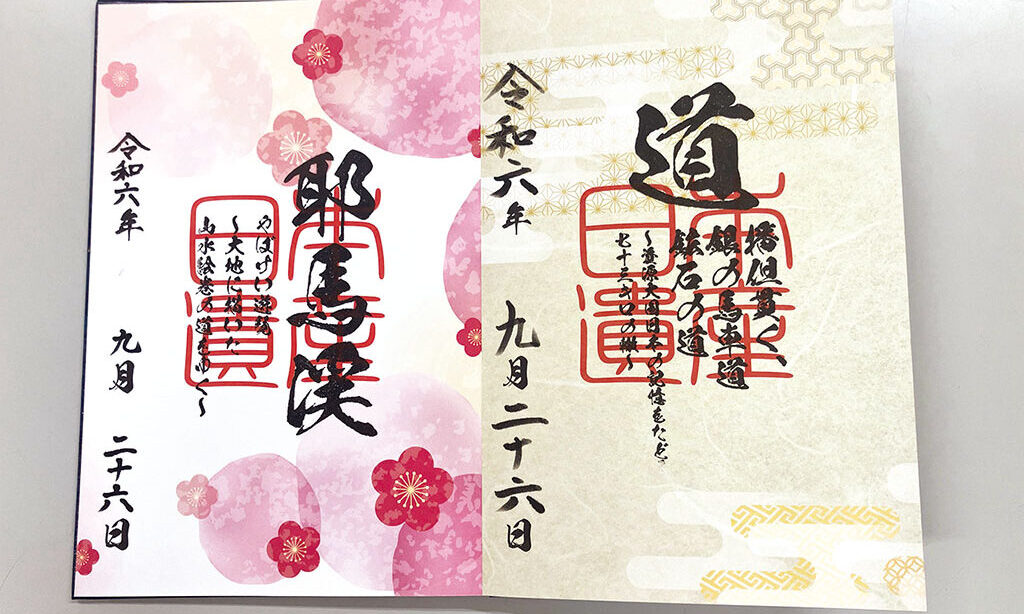 道
播但貫く、
銀の馬車道
鉱石の道
〜資源大国日本の記憶をたどる
七十三キロの轍〜
日本
遺産
令和六年 九月二十六日
耶馬渓
やばけい遊覧
〜大地に描いた
山水絵巻の道をゆく〜
日本
遺産
令和六年 九月 二十六日